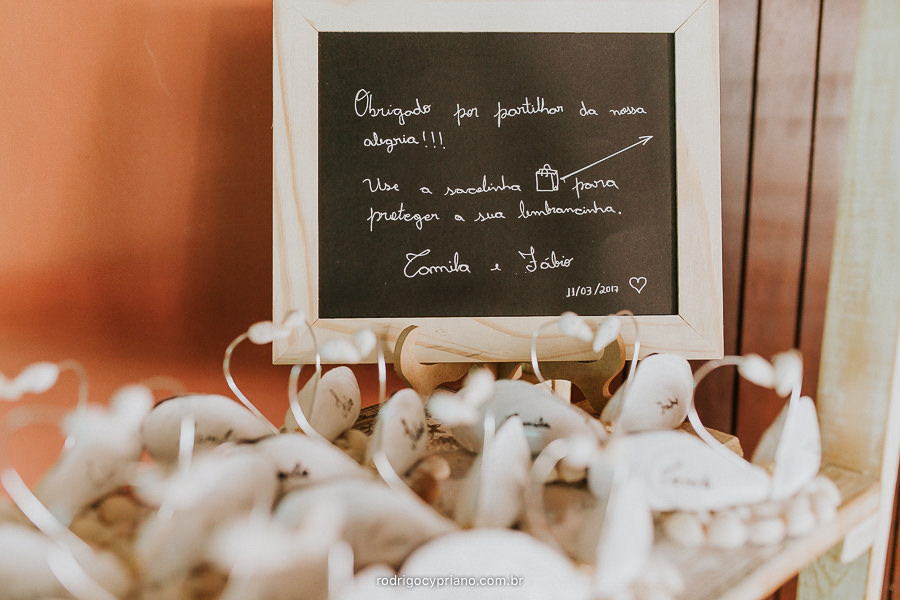 Obrigado por partilhar da nossa
alegria!!!
Use a sacolinha para
proteger a sua lembrancinha.
Camila e Fábio
11/03/2017
rodrigocypriano.com.br